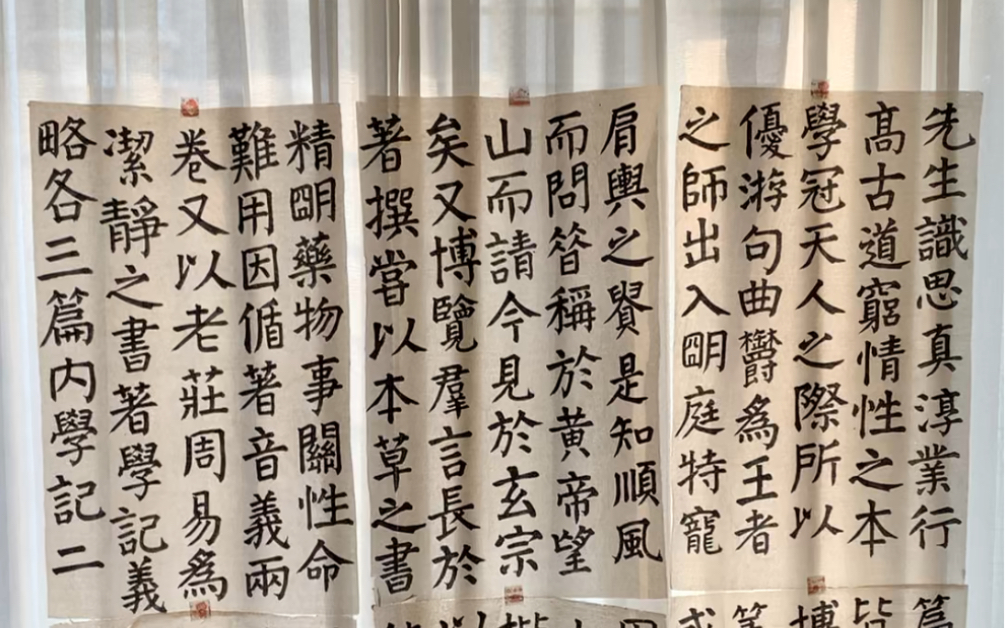 先生識思真淳業行
高古道窮情性之本
學冠天人之際所以
優游句曲欝為王者
之師出入明庭特寵
肩輿之賢是知順風
而問答稱於黃帝望
山而請今見於玄宗
矣又博覽羣言長於
著撰嘗以本草之書
精明藥物事關性命
難用因循著音義兩
卷又以老莊周易為
潔靜之書著學記義
略各三篇内學記二
篇
皆
博